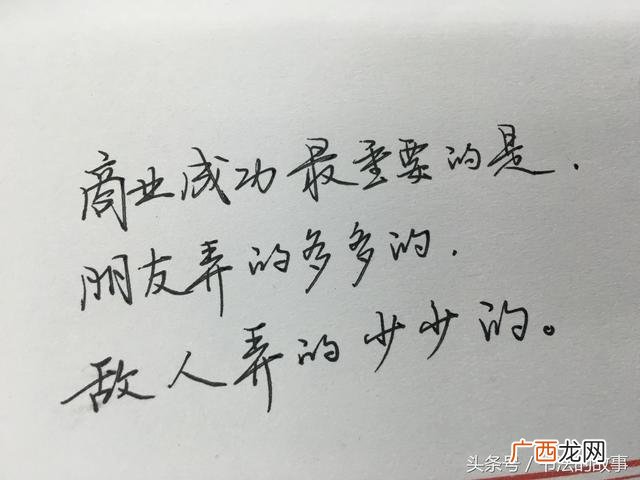 商业成功最重要的是.
朋友弄的多多的.
敌人弄的少少的。
广西龙网
头条号/书法的故事